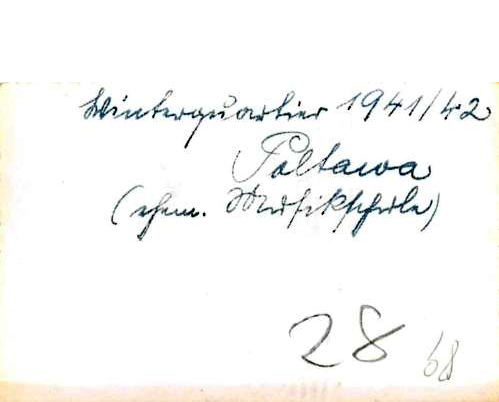 Winterquartier 1941/42
Poltawa
(ehem. Musikschule)
28 68